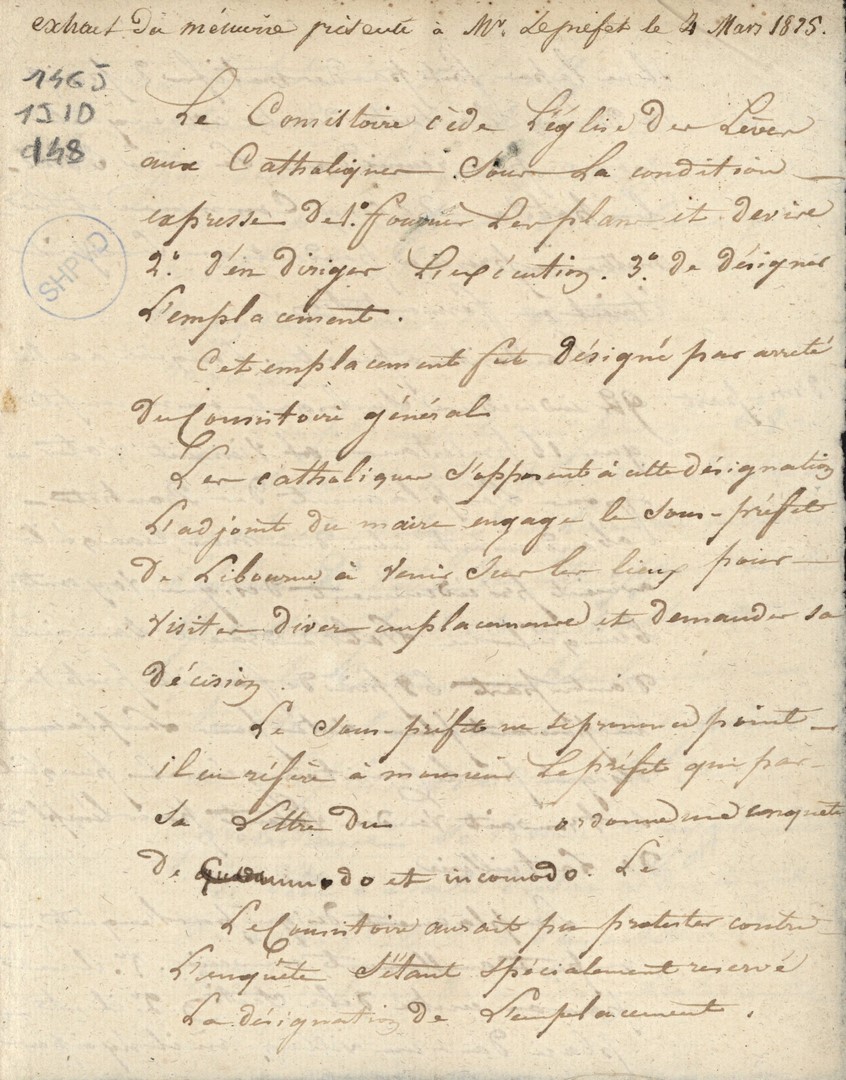 extrait du mémoire présenté à Mr. Le préfet le 4 Mars 1825.
1465
1510
948
SHPVD
Le Consistoire cède L'église des Lèves
aux Catholiques sous La condition
expresse de 1.o fournir Les plans et devis
2.o d'en diriger L'exécution. 3.o de désigner
L'emplacement.
Cet emplacement fut désigné par arrêté
du Consistoire général
Les catholiques s'opposent à cette désignation
L'adjoint du maire engage le sous-préfet
De Libourne à venir sur les lieux pour
visiter divers emplacemens et demander sa
décision.
Le sous-préfet ne se prononce point
il en réfère à monsieur Le préfet qui par
sa Lettre du ordonne une enquete
De do et incomodo. Le
Le Consistoire aurait pu protester contre
L'enquête s'étant spécialement reservé
La désignation de L'emplacement.